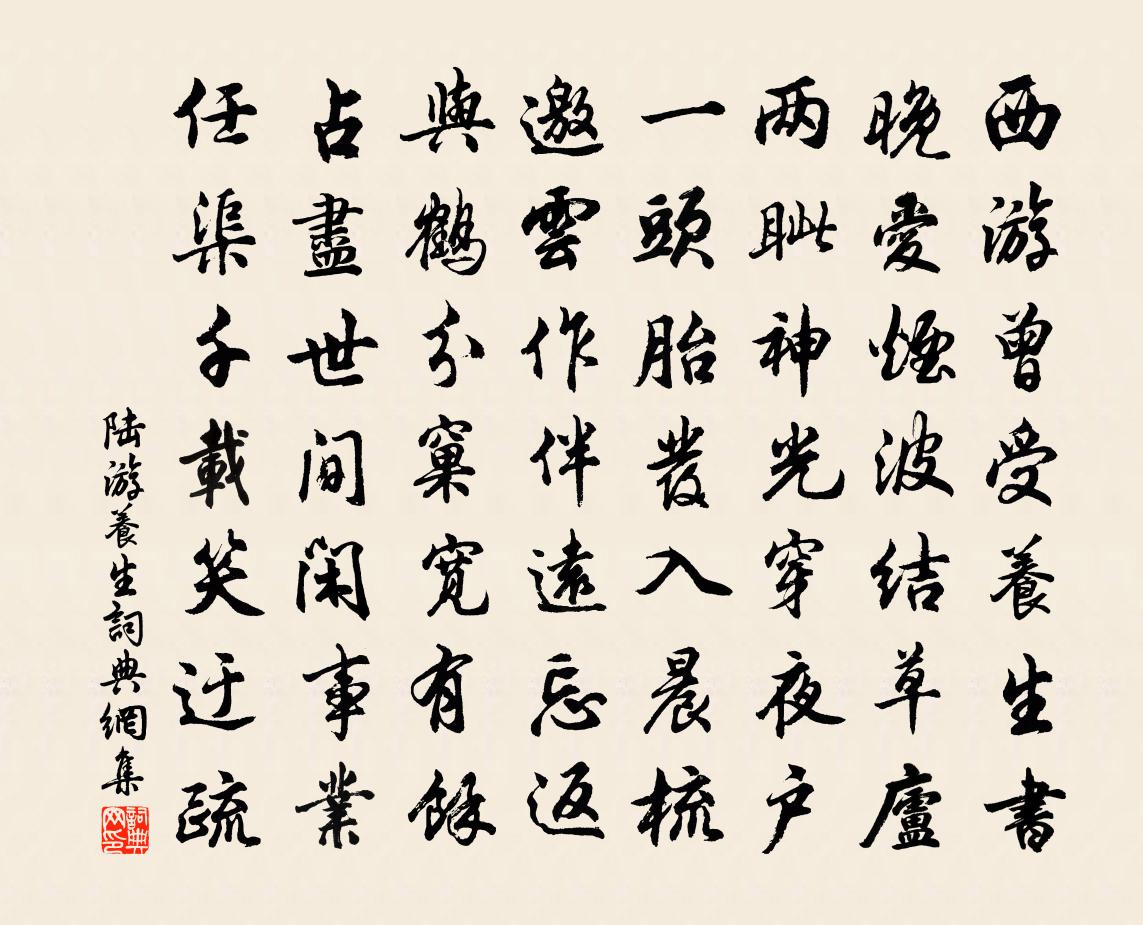 西游曾受養生書
晚愛煙波結草廬
两眦神光穿夜户
一頭胎髮入晨梳
邀雲作伴遠忘返
與鶴分窠寬有餘
占盡世間閑事業
任渠千載笑迂疏
陸游養生詞典網集
詞典
网印